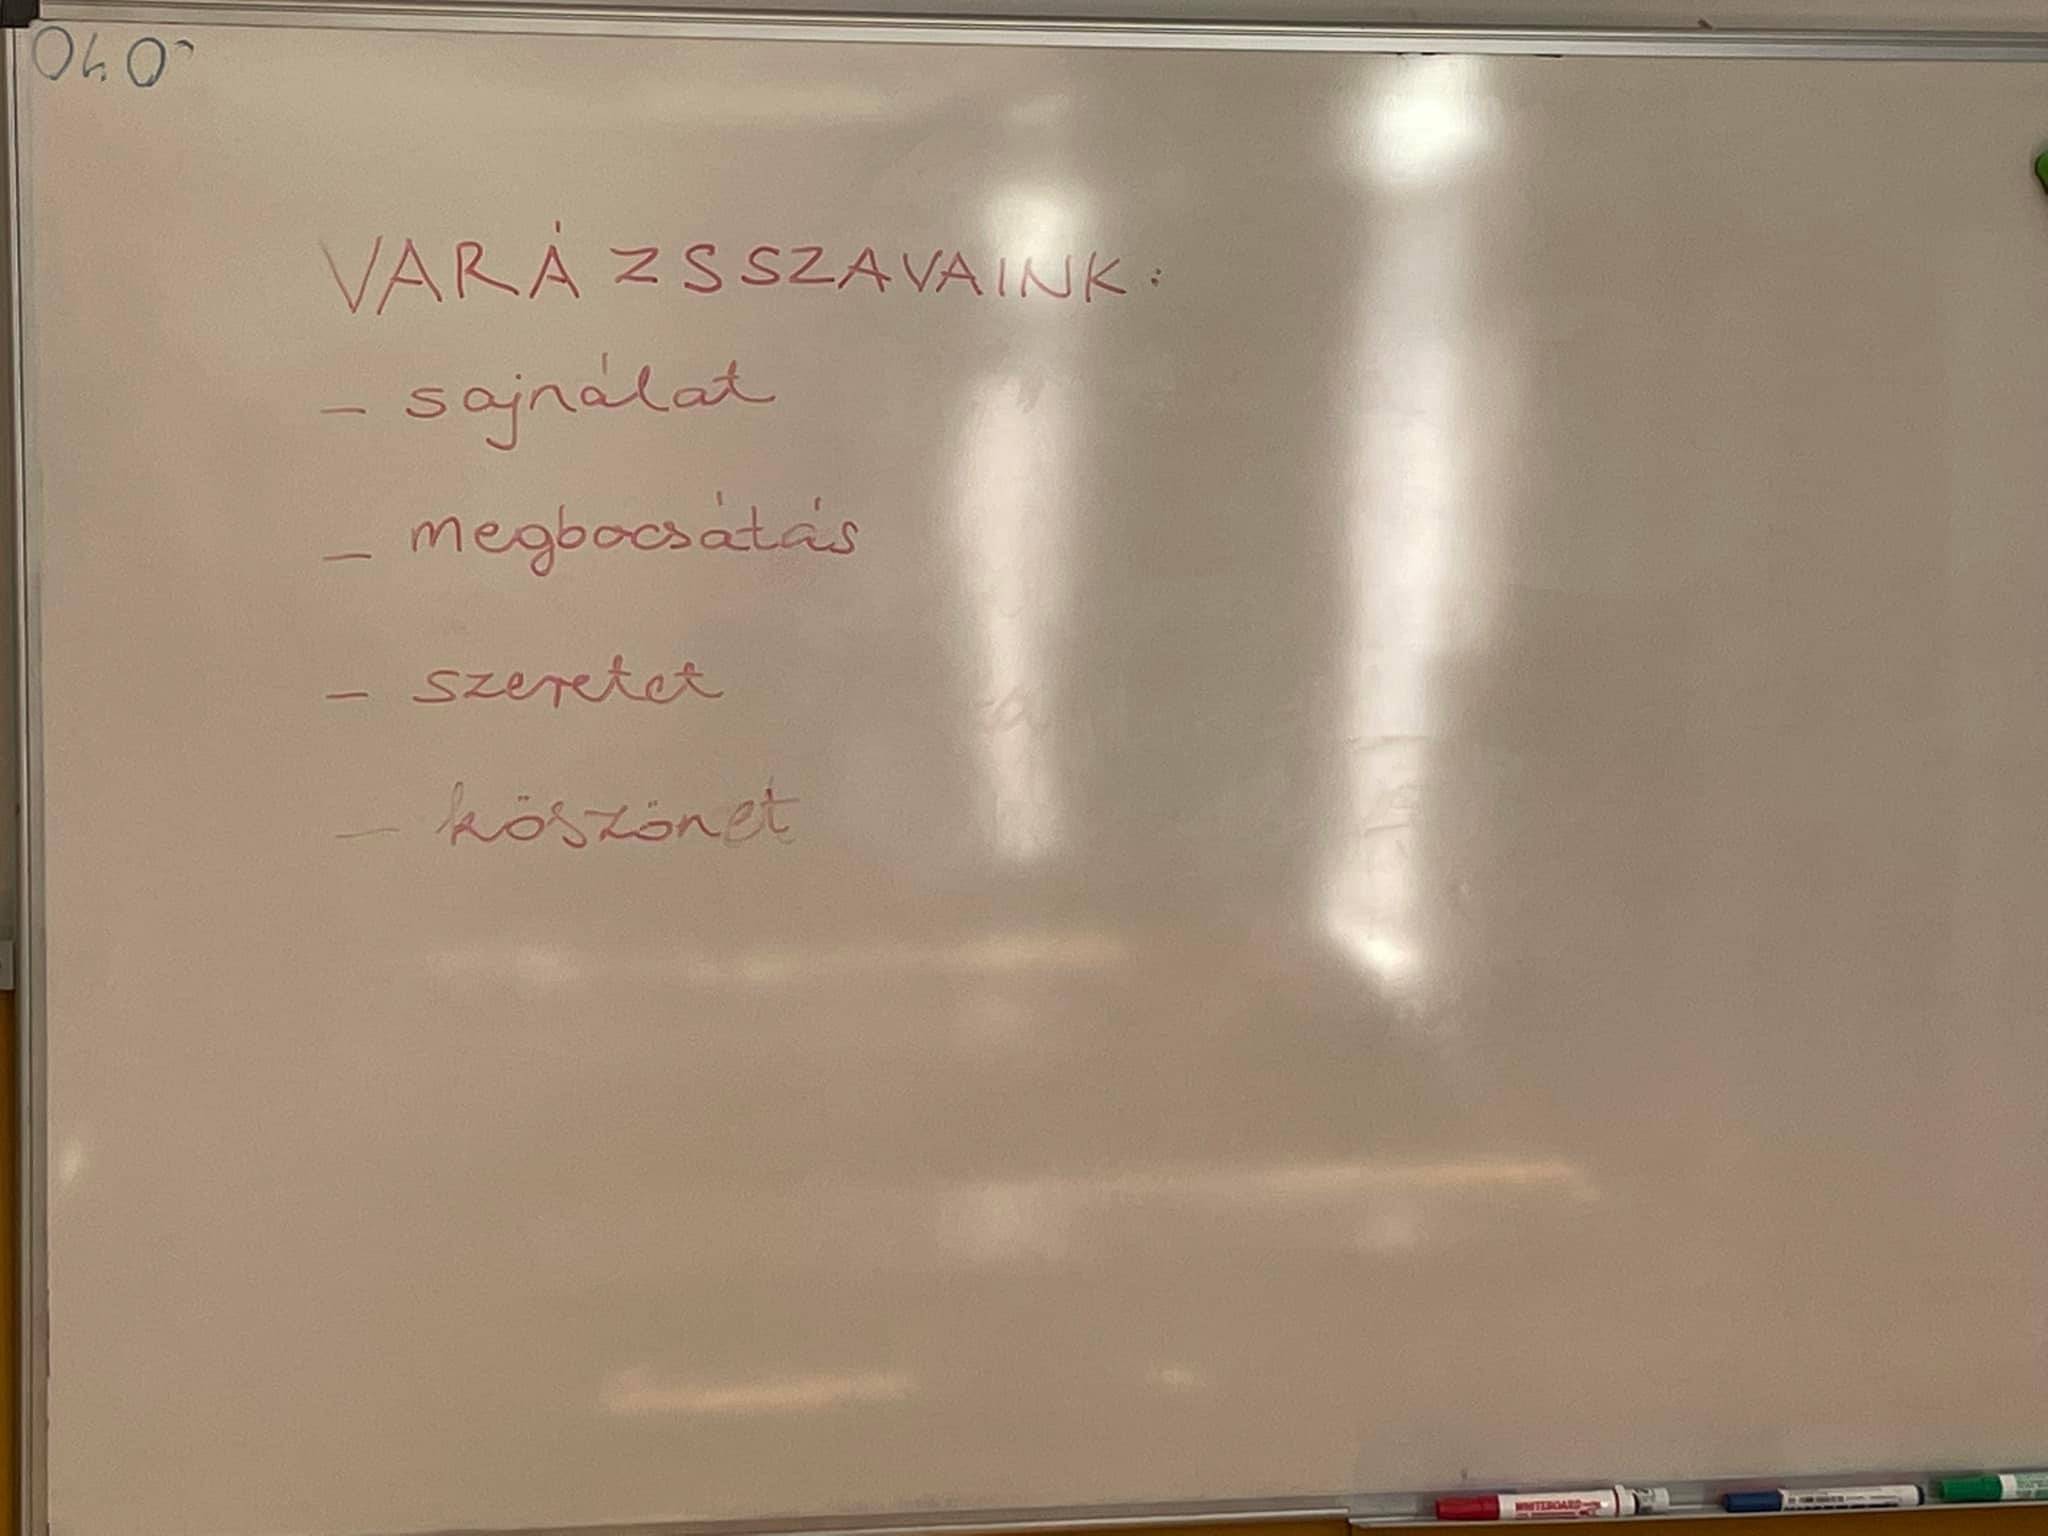 VARÁZSSZAVAINK:
- sajnálat
- megbocsátás
- szeretet
- köszönet
WHITEBOARD